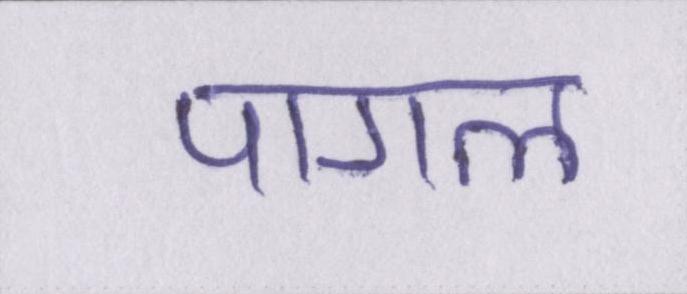 पागल